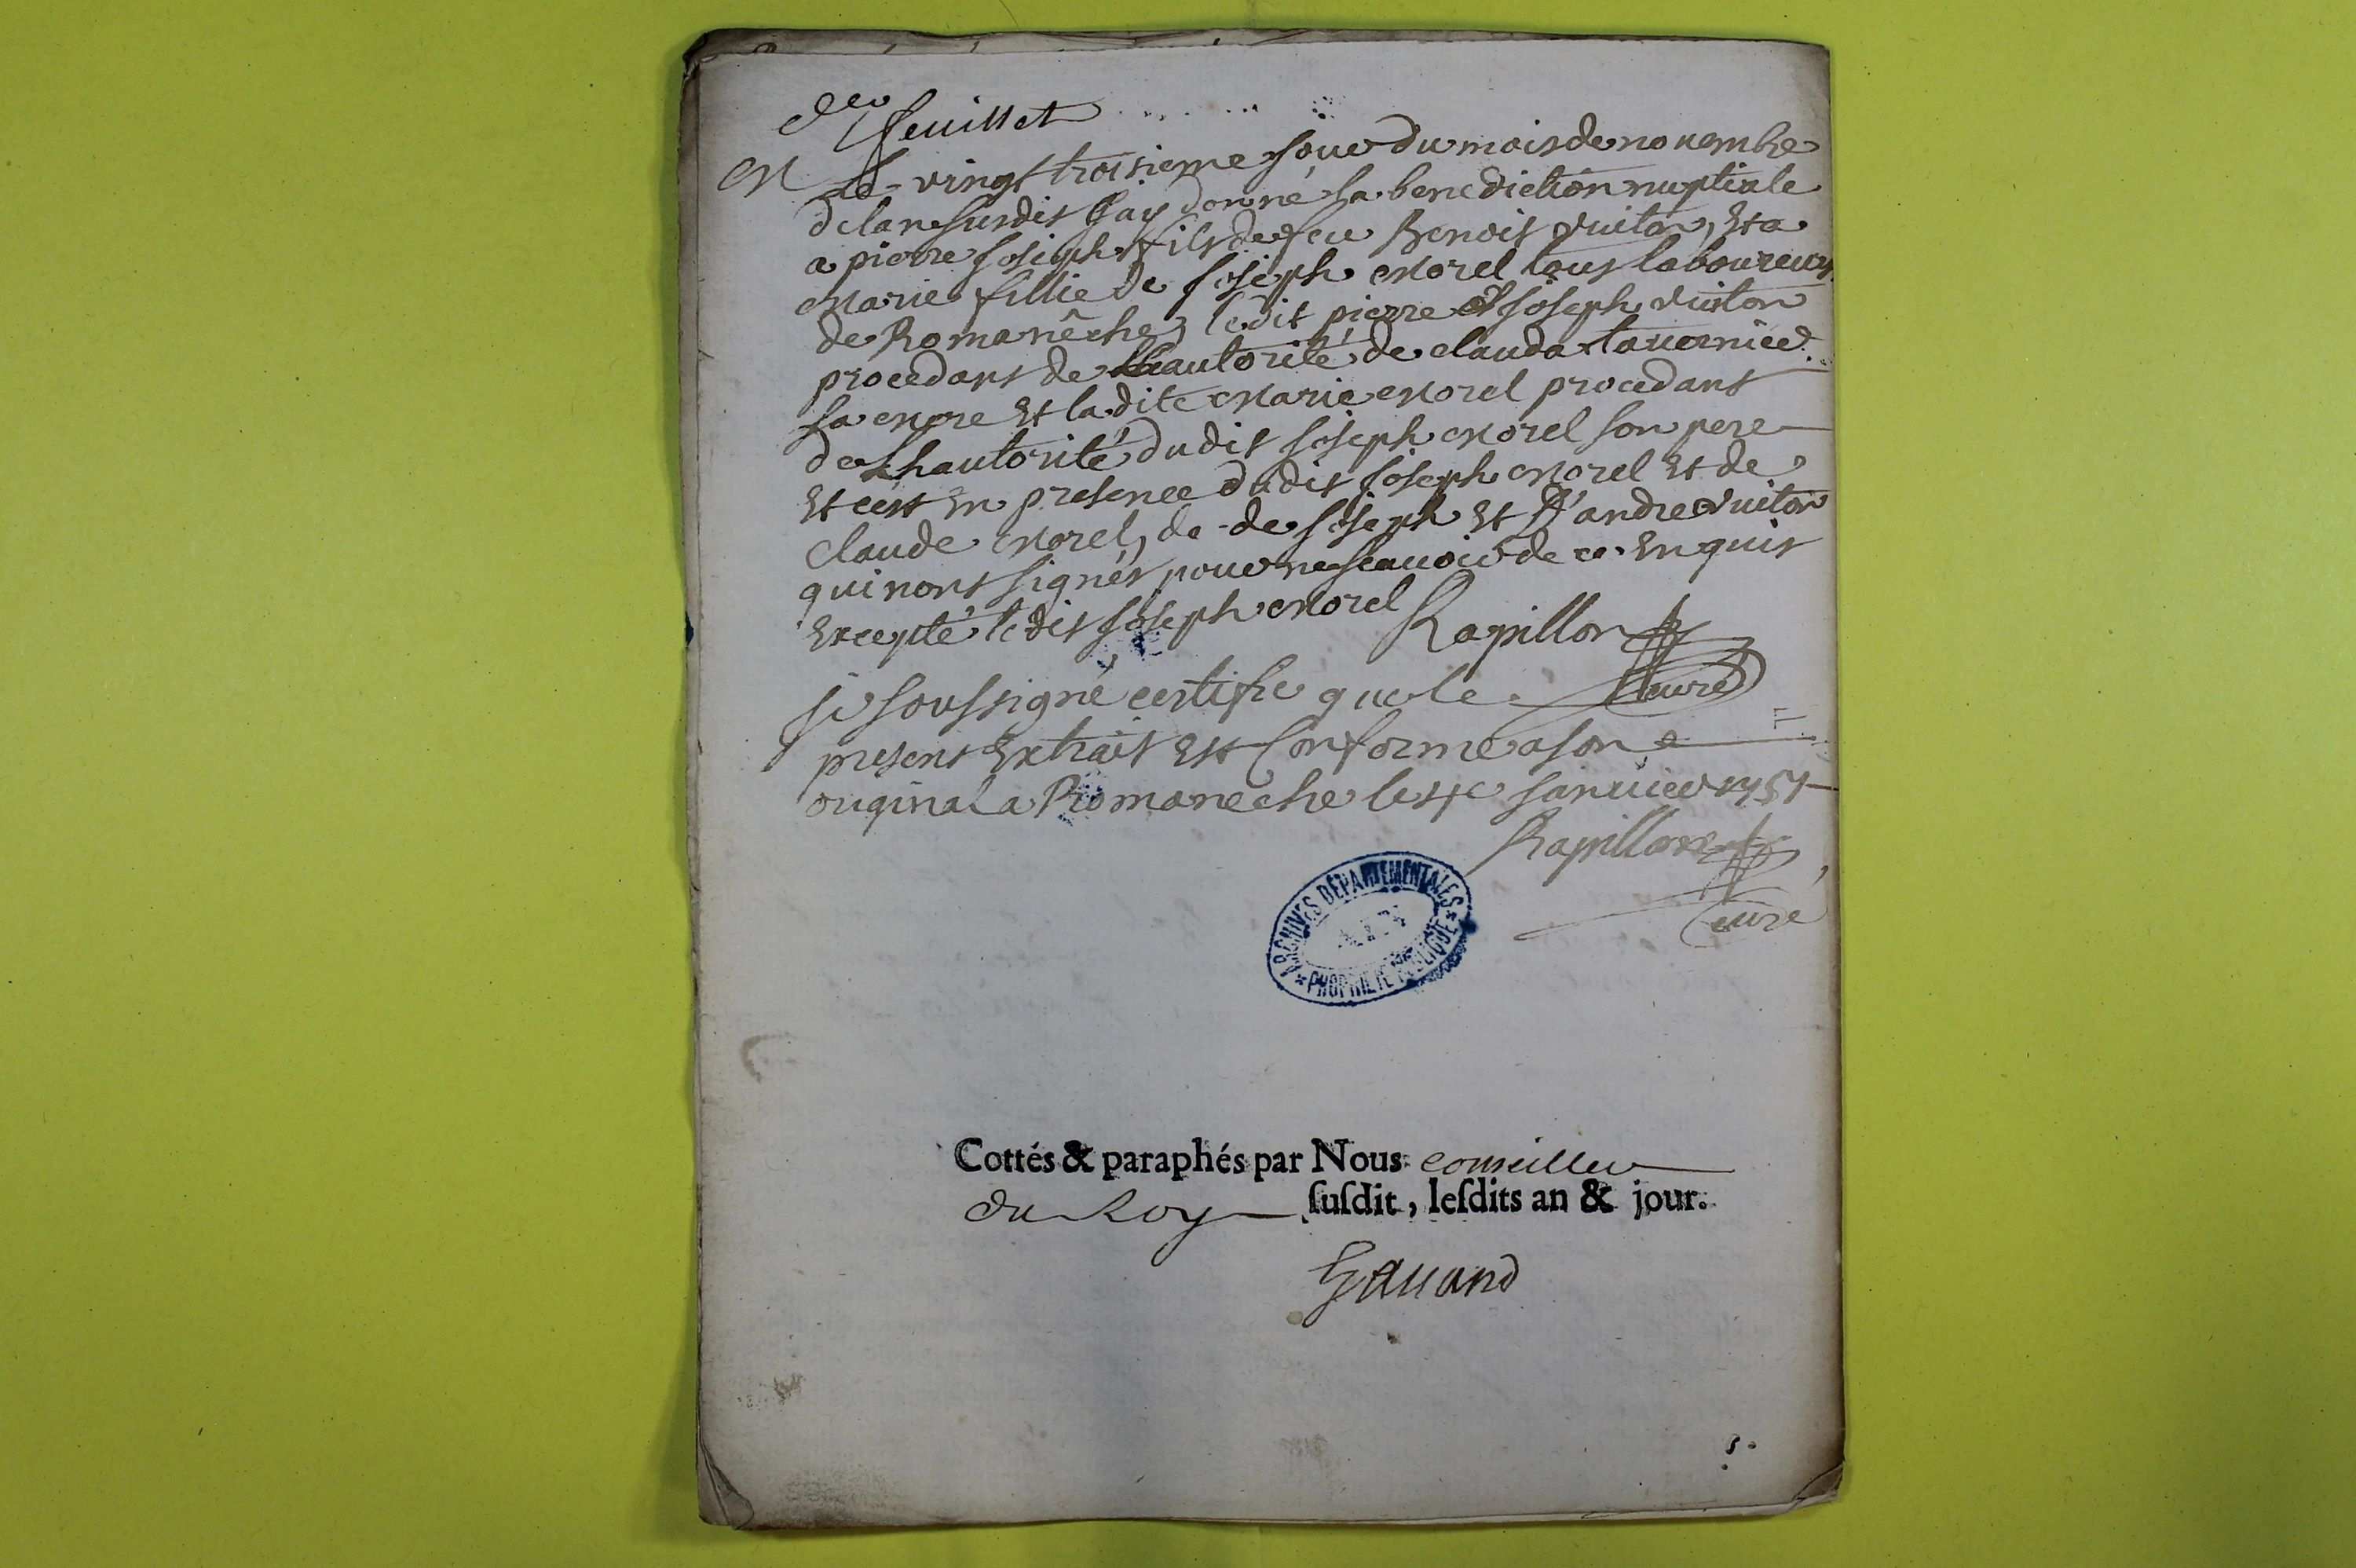 der feuillet
M Le vingt troisieme jour du mois de novembre
de lan susdit jay donné la benediction nuptiale
a pierre joseph fils de feu Benoit vuiton, Et a
Marie fillie de joseph Morel tous laboureurs
de Romanêche, ledit pierre joseph vuiton
procedant de lhautorité de clauda tavernier
sa mere Et la dite Marie Morel procedant
de Lhautorité dudit joseph Morel son pere
Et cest En presence dudit joseph Morel Et de
Claude Morel, de de joseph Et D'andre vuiton
qui nont signés pour ne scavoir de ce Enquis
Excepté le dit joseph Morel Rapillon
curé
je soussigné certifie que le
present Extrait Est Conforme a son
original a Romaneche le janvier 1751
Rapillon
curé
ARCHIVES DÉPARTEMENTALES
AIN
PROPRIÉTÉ PUBLIQUE
Cottés & paraphés par Nous conseiller
du Roy ſuſdit, leſdits an & jour.
Gauand